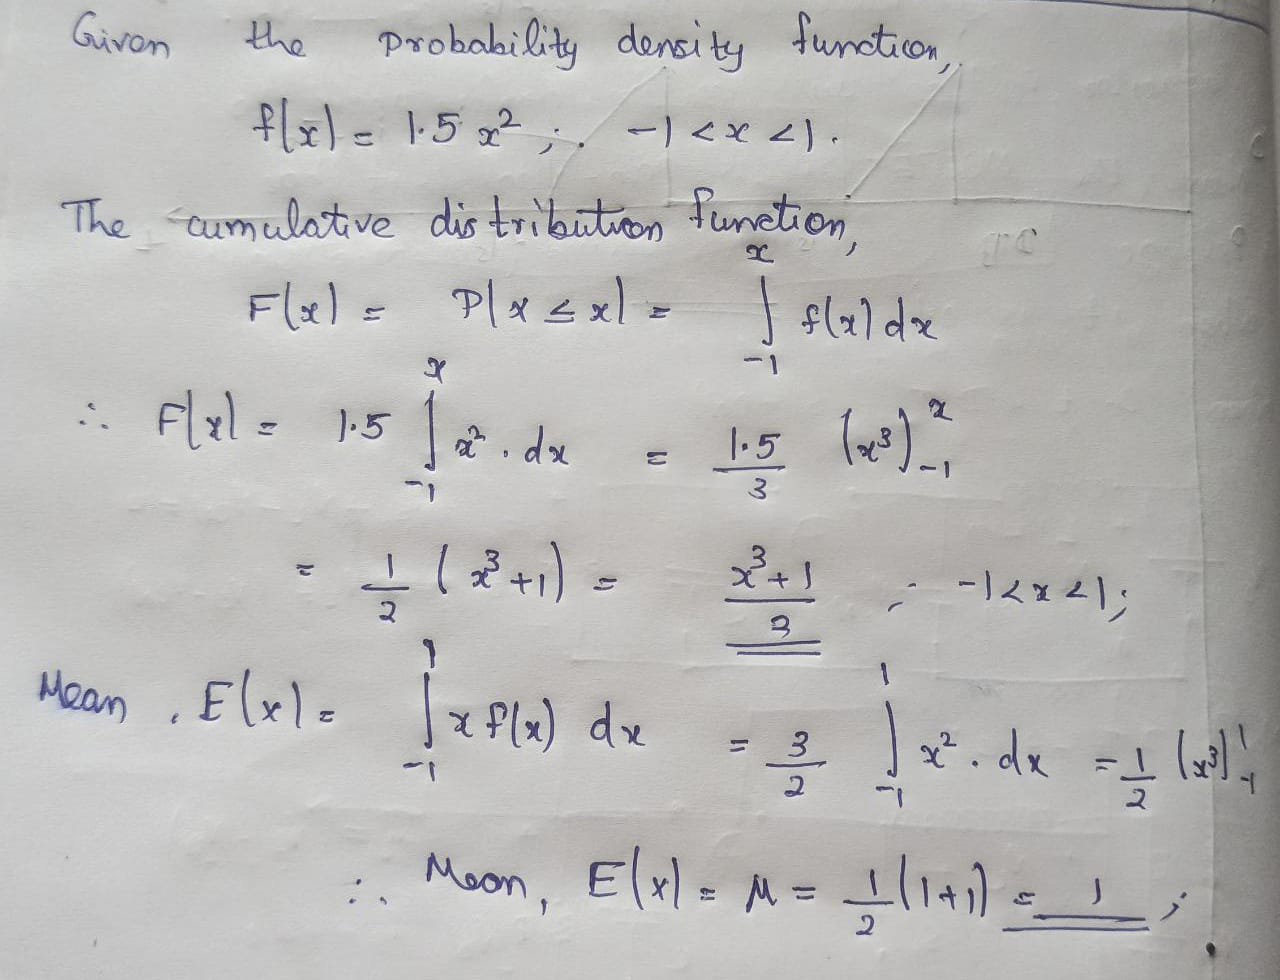 Given the probability density function,
f(x) = 1.5 x² ; -1 < x < 1.
The cumulative distribution function,
F(x) = P(x ≤ x) = ∫_{-1}^{x} f(x) dx
∴ F(x) = 1.5 ∫_{-1}^{x} x² . dx = 1.5/3 (x³)_{-1}^{x}
= 1/2 (x³+1) = (x³+1)/2 ; -1 < x < 1;
Mean, E(x) = ∫_{-1}^{1} x f(x) dx = 3/2 ∫_{-1}^{1} x² . dx = 1/2 (x³)_{-1}^{1}
∴ Mean, E(x) = μ = 1/2 (1+1) = 1 ;